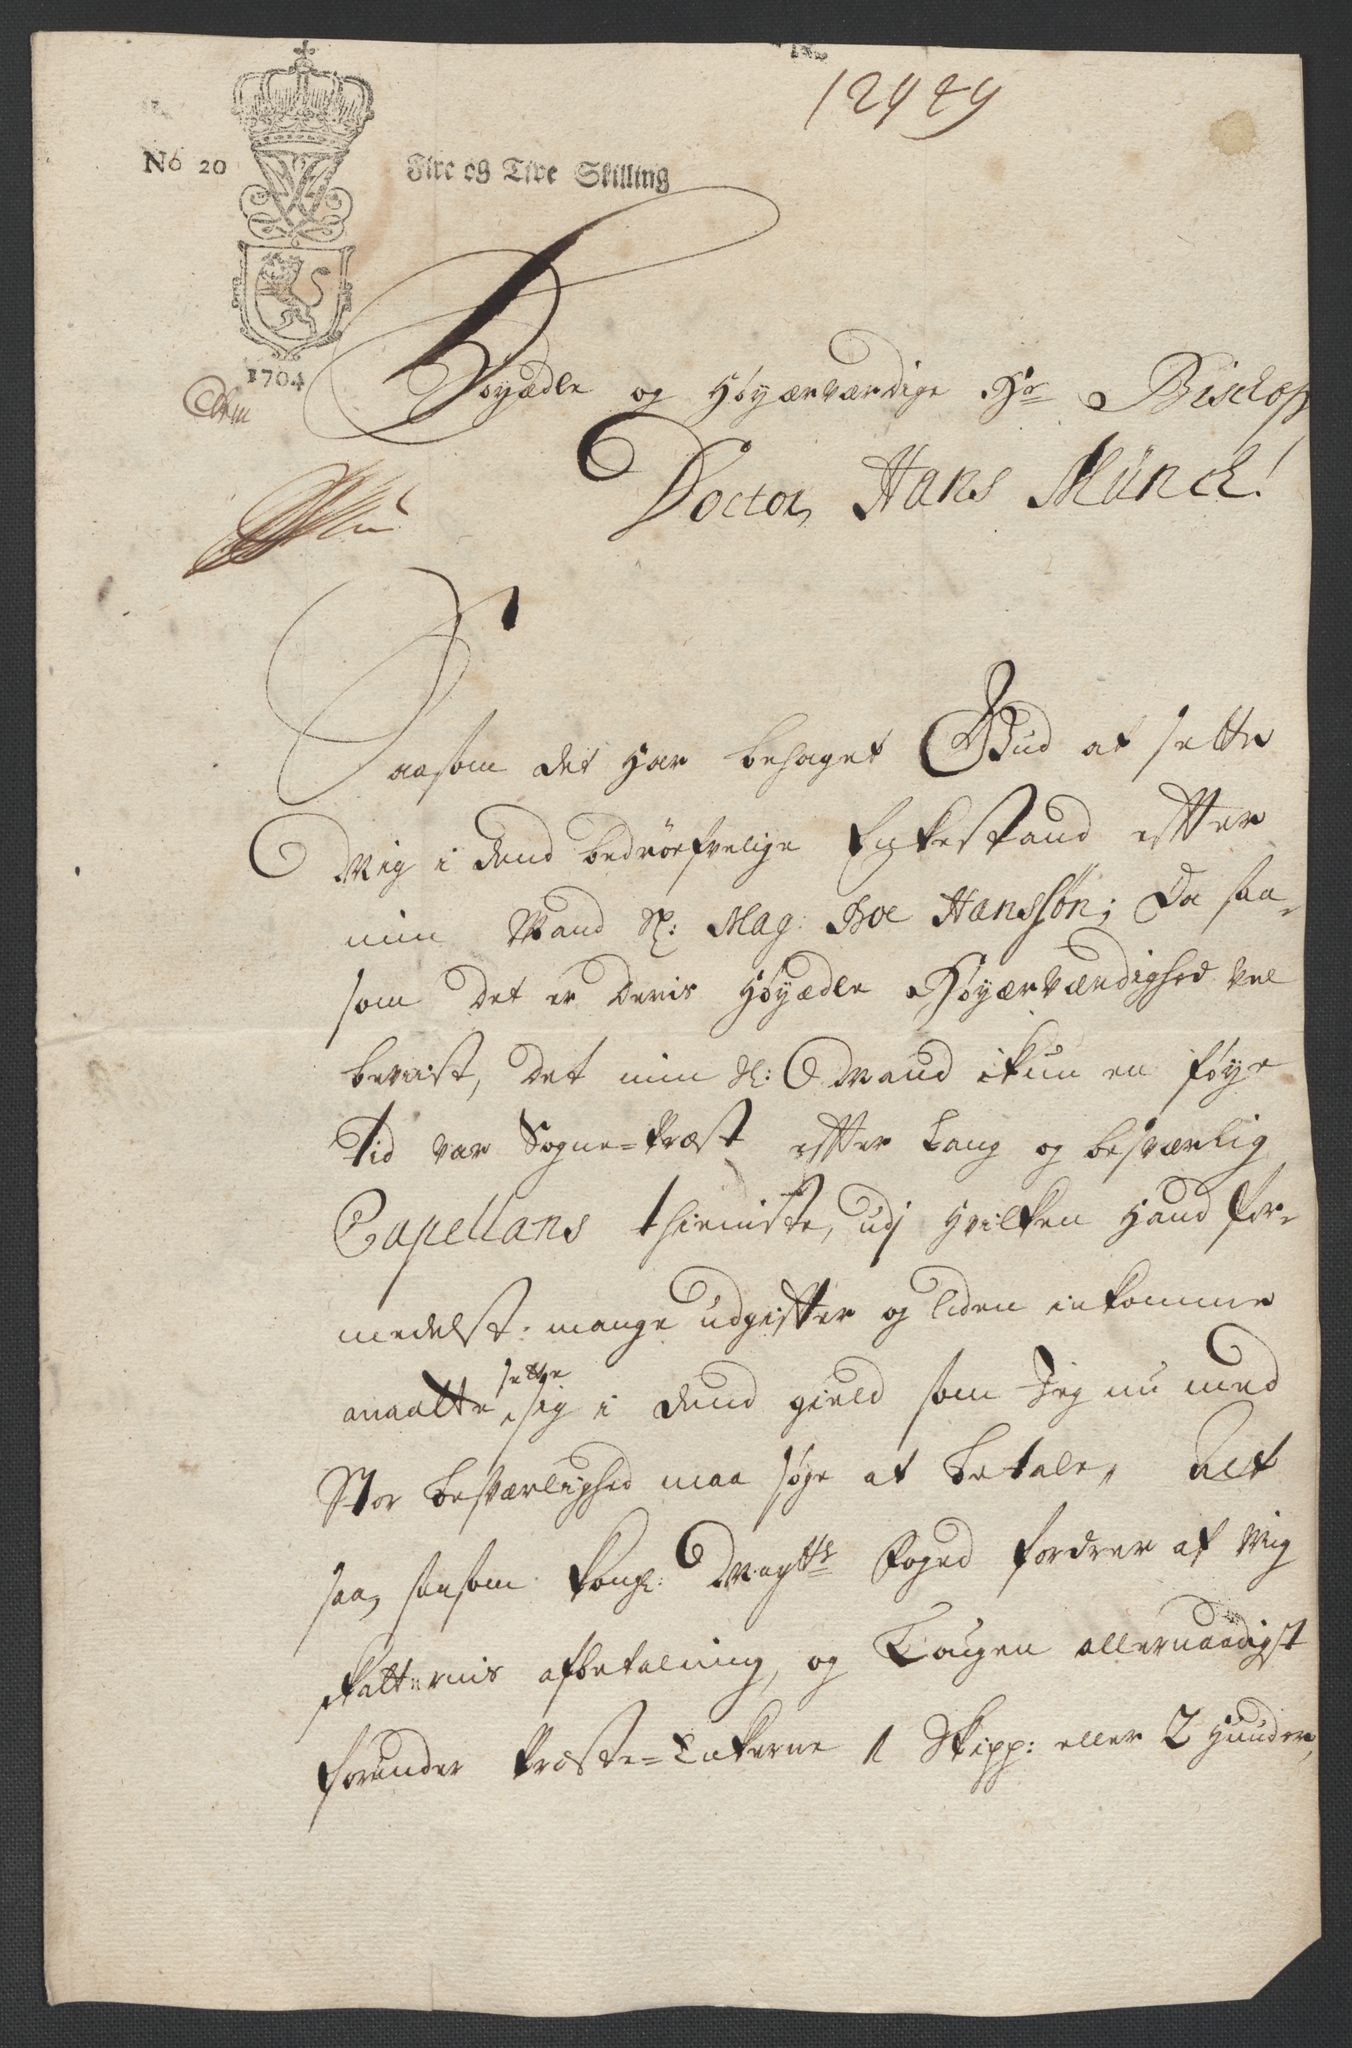 12449
No 20
Fire og Tive Skilling
1704
Høyædle og Høyærværdige Hr Bischop
Doctor Hans Münch!
Saasom det har behaget Gud at sette
Mig i dend bedrøefvelige Enkestand efter
min Mand Sl: Mag: Boe Hanssøn; Da saa-
som det er Deris Høyædle Høyærværdighed vel
bevist, det min Sl: Mand ikun en føye
tid var Sogne=Præst efter lang og besværlig
Capellans thieniste, udj hvilken hand for-
medelst mange udgifter og liden inkomme
maatte sette sig i dend gield som Jeg nu med
Stor besværlighed maa søge at betale, Alt
saa, saasom Kongl: Maytts Foged fordrer af Mig
skatternis afbetalning, og Lougen allernaadigst
forunder Præste=Enkerne 1 Skipp: eller 2 Hunder,